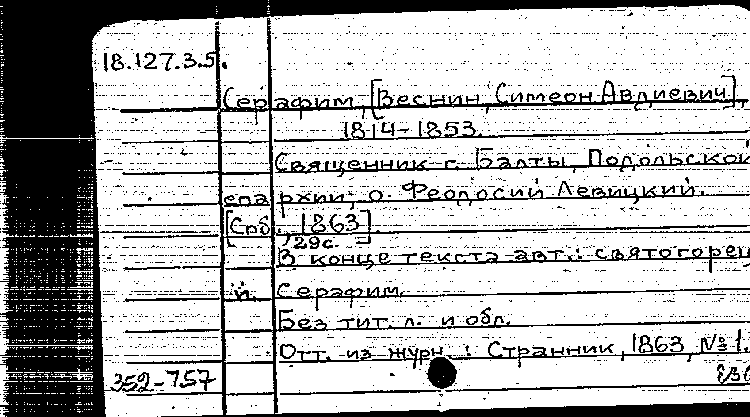 18.127.3.5.
Серафим, [Веснин, Симеон Авдиевич],
1814-1853.
Священник г. Балты, Подольской
епархии, о. Феодосий Левицкий.
[Спб., 1863].
29с.
В конце текста авт.: святогорец
и. Серафим.
Без тит. л. и обл.
Отт. из журн.: Странник, 1863, №1.
352-757